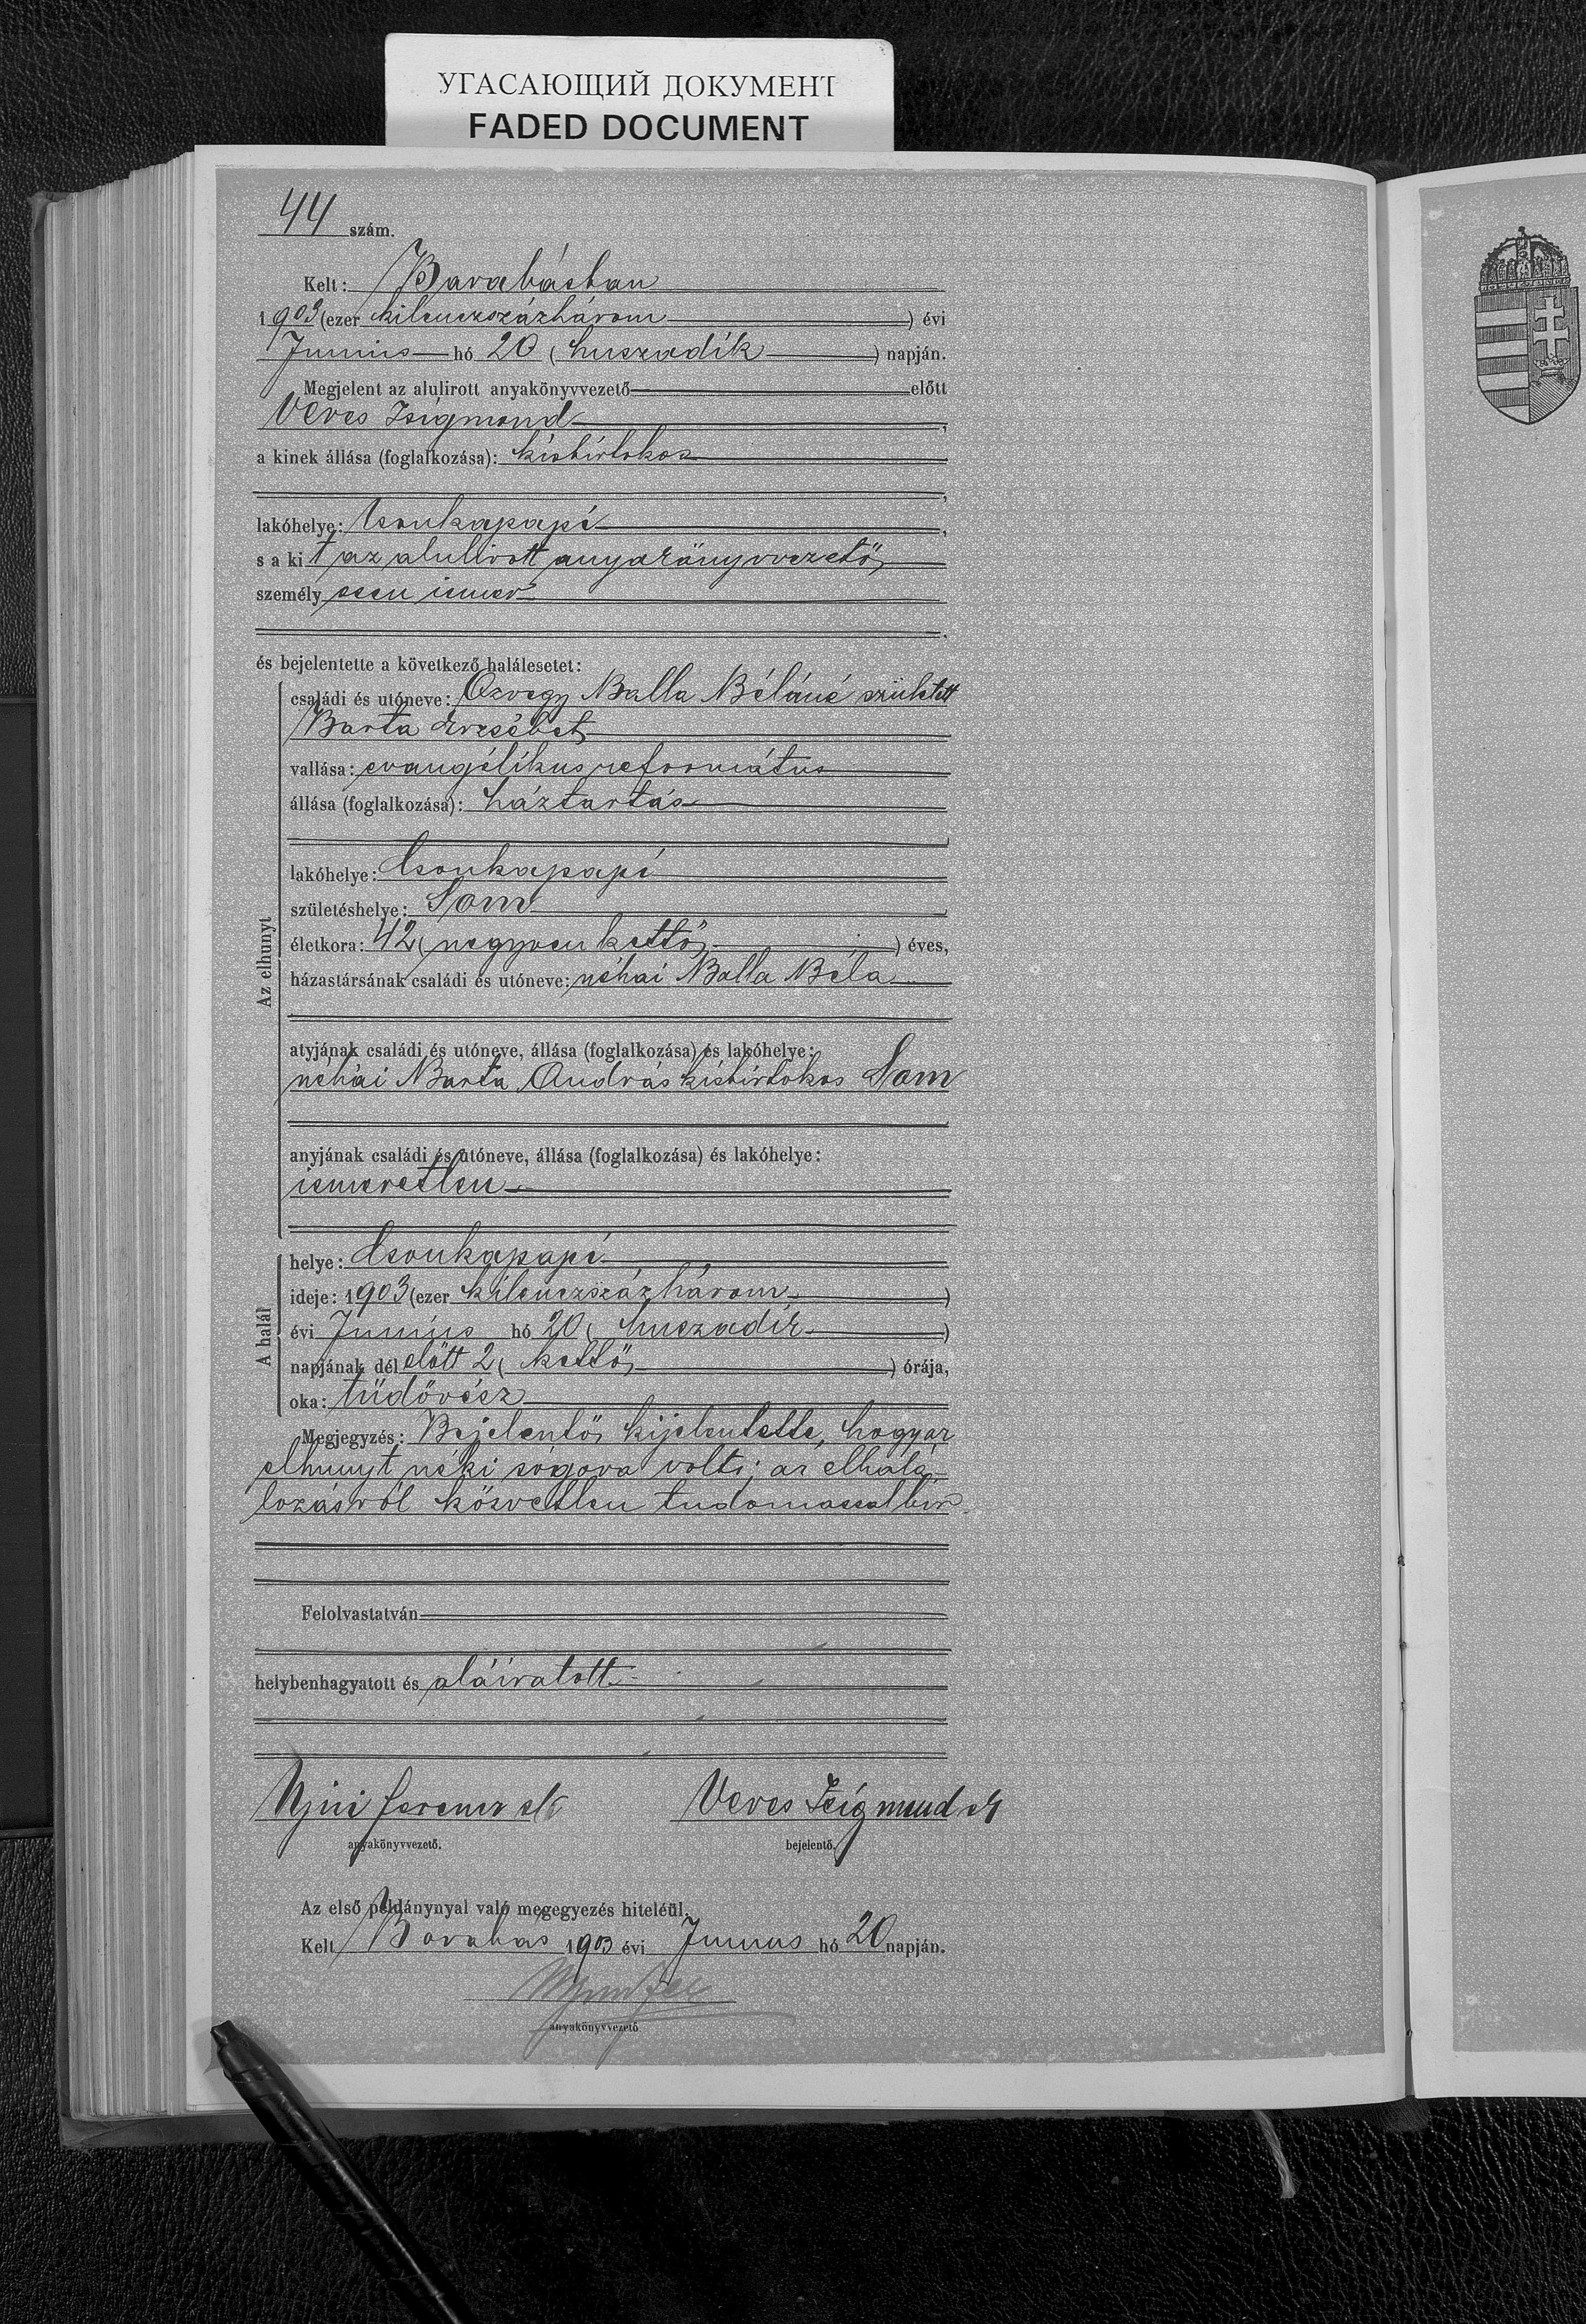 УГАСАЮЩИЙ ДОКУМЕНТ
FADED DOCUMENT
44 szám.
Kelt: Barabásban
1903 (ezer kilenczszázhárom ) évi
Junius hó 20 ( huszadik ) napján.
Megjelent az alulirott anyakönyvvezető előtt
Veres Zsigmond ,
a kinek állása (foglalkozása): kisbirtokos
,
lakóhelye: Csonkapapi ,
s a kit az alulirott anyakönyvvezető
személyesen ismer
.
és bejelentette a következő halálesetet:
Az elhunyt
családi és utóneve: Özvegy Balla Béláné született
Barta Erzsébet
vallása: evangélikus református
állása (foglalkozása): háztartás
,
lakóhelye: Csonkapapi
születéshelye: Som ,
életkora: 42 ( negyvenkettő ) éves,
házastársának családi és utóneve: néhai Balla Béla
atyjának családi és utóneve, állása (foglalkozása) és lakóhelye:
néhai Barta András kisbirtokos Som
anyjának családi és utóneve, állása (foglalkozása) és lakóhelye:
ismeretlen
A halál
helye: Csonkapapi
ideje: 1903 (ezer kilenczszázhárom )
évi Junius hó 20 ( huszadik )
napjának délelőtt 2 ( kettő ) órája,
oka: tüdővész
Megjegyzés: Bejelentő kijelentette, hogy az
elhunyt néki sógora volt; az elhalá-
lozásról közvetlen tudomással bir.
Felolvastatván
helybenhagyatott és aláiratott
Ferencz sk Veres Zsigmond sk
anyakönyvvezető. bejelentő.
Az első példánynyal való megegyezés hiteléül.
Kelt Barabás 1903 évi Junius hó 20 napján.
anyakönyvvezető